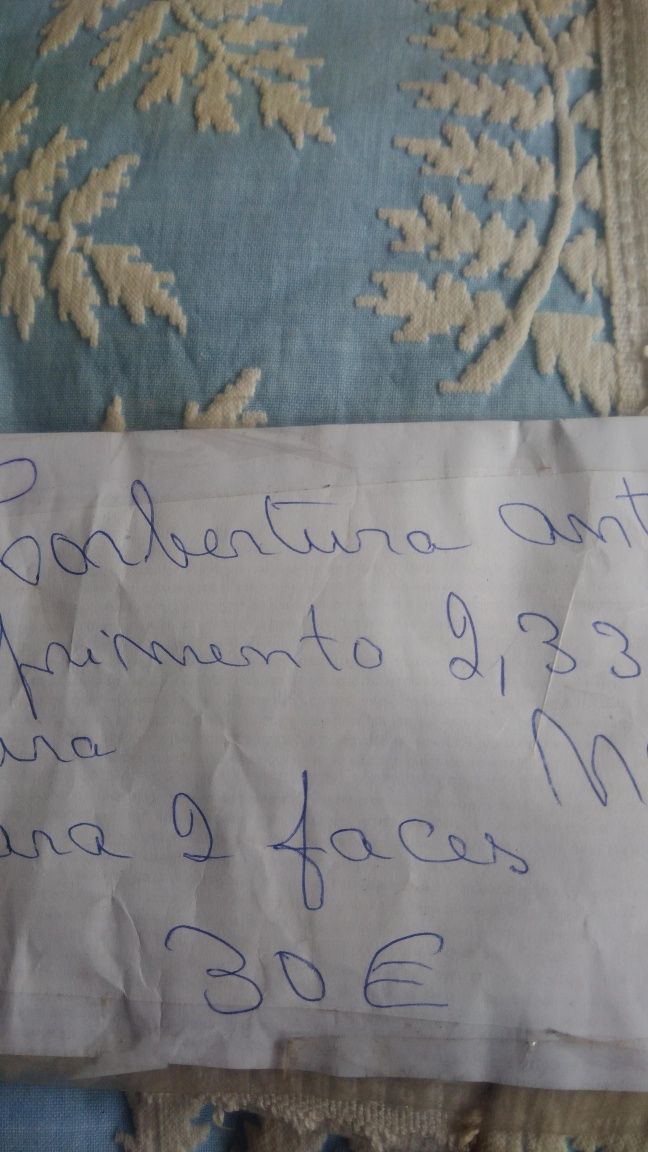 Corbertura ant
primento 2,33
ura
ara 2 faces
30€